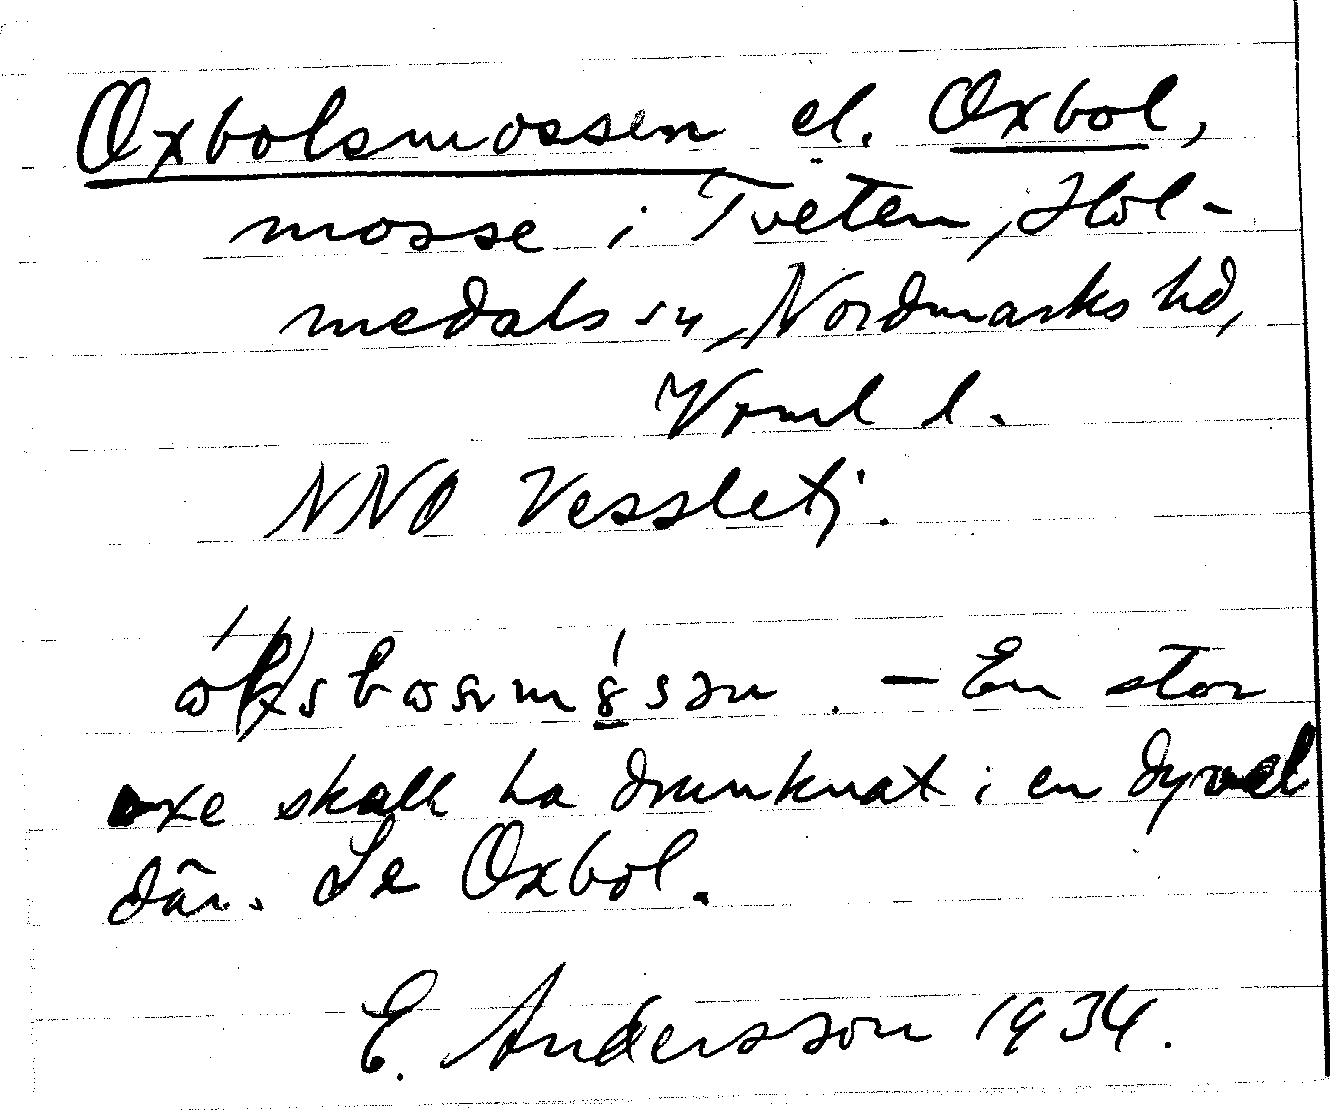 Oxbolsmossen el. Oxbol,
mosse i Tveten, Hol-
medals sn, Nordmarks hd,
Vrml l.
NNO Vessletj.
– En stor
oxe skall ha drunknat i en dyvel
där. Se Oxbol.
E. Andersson 1934.